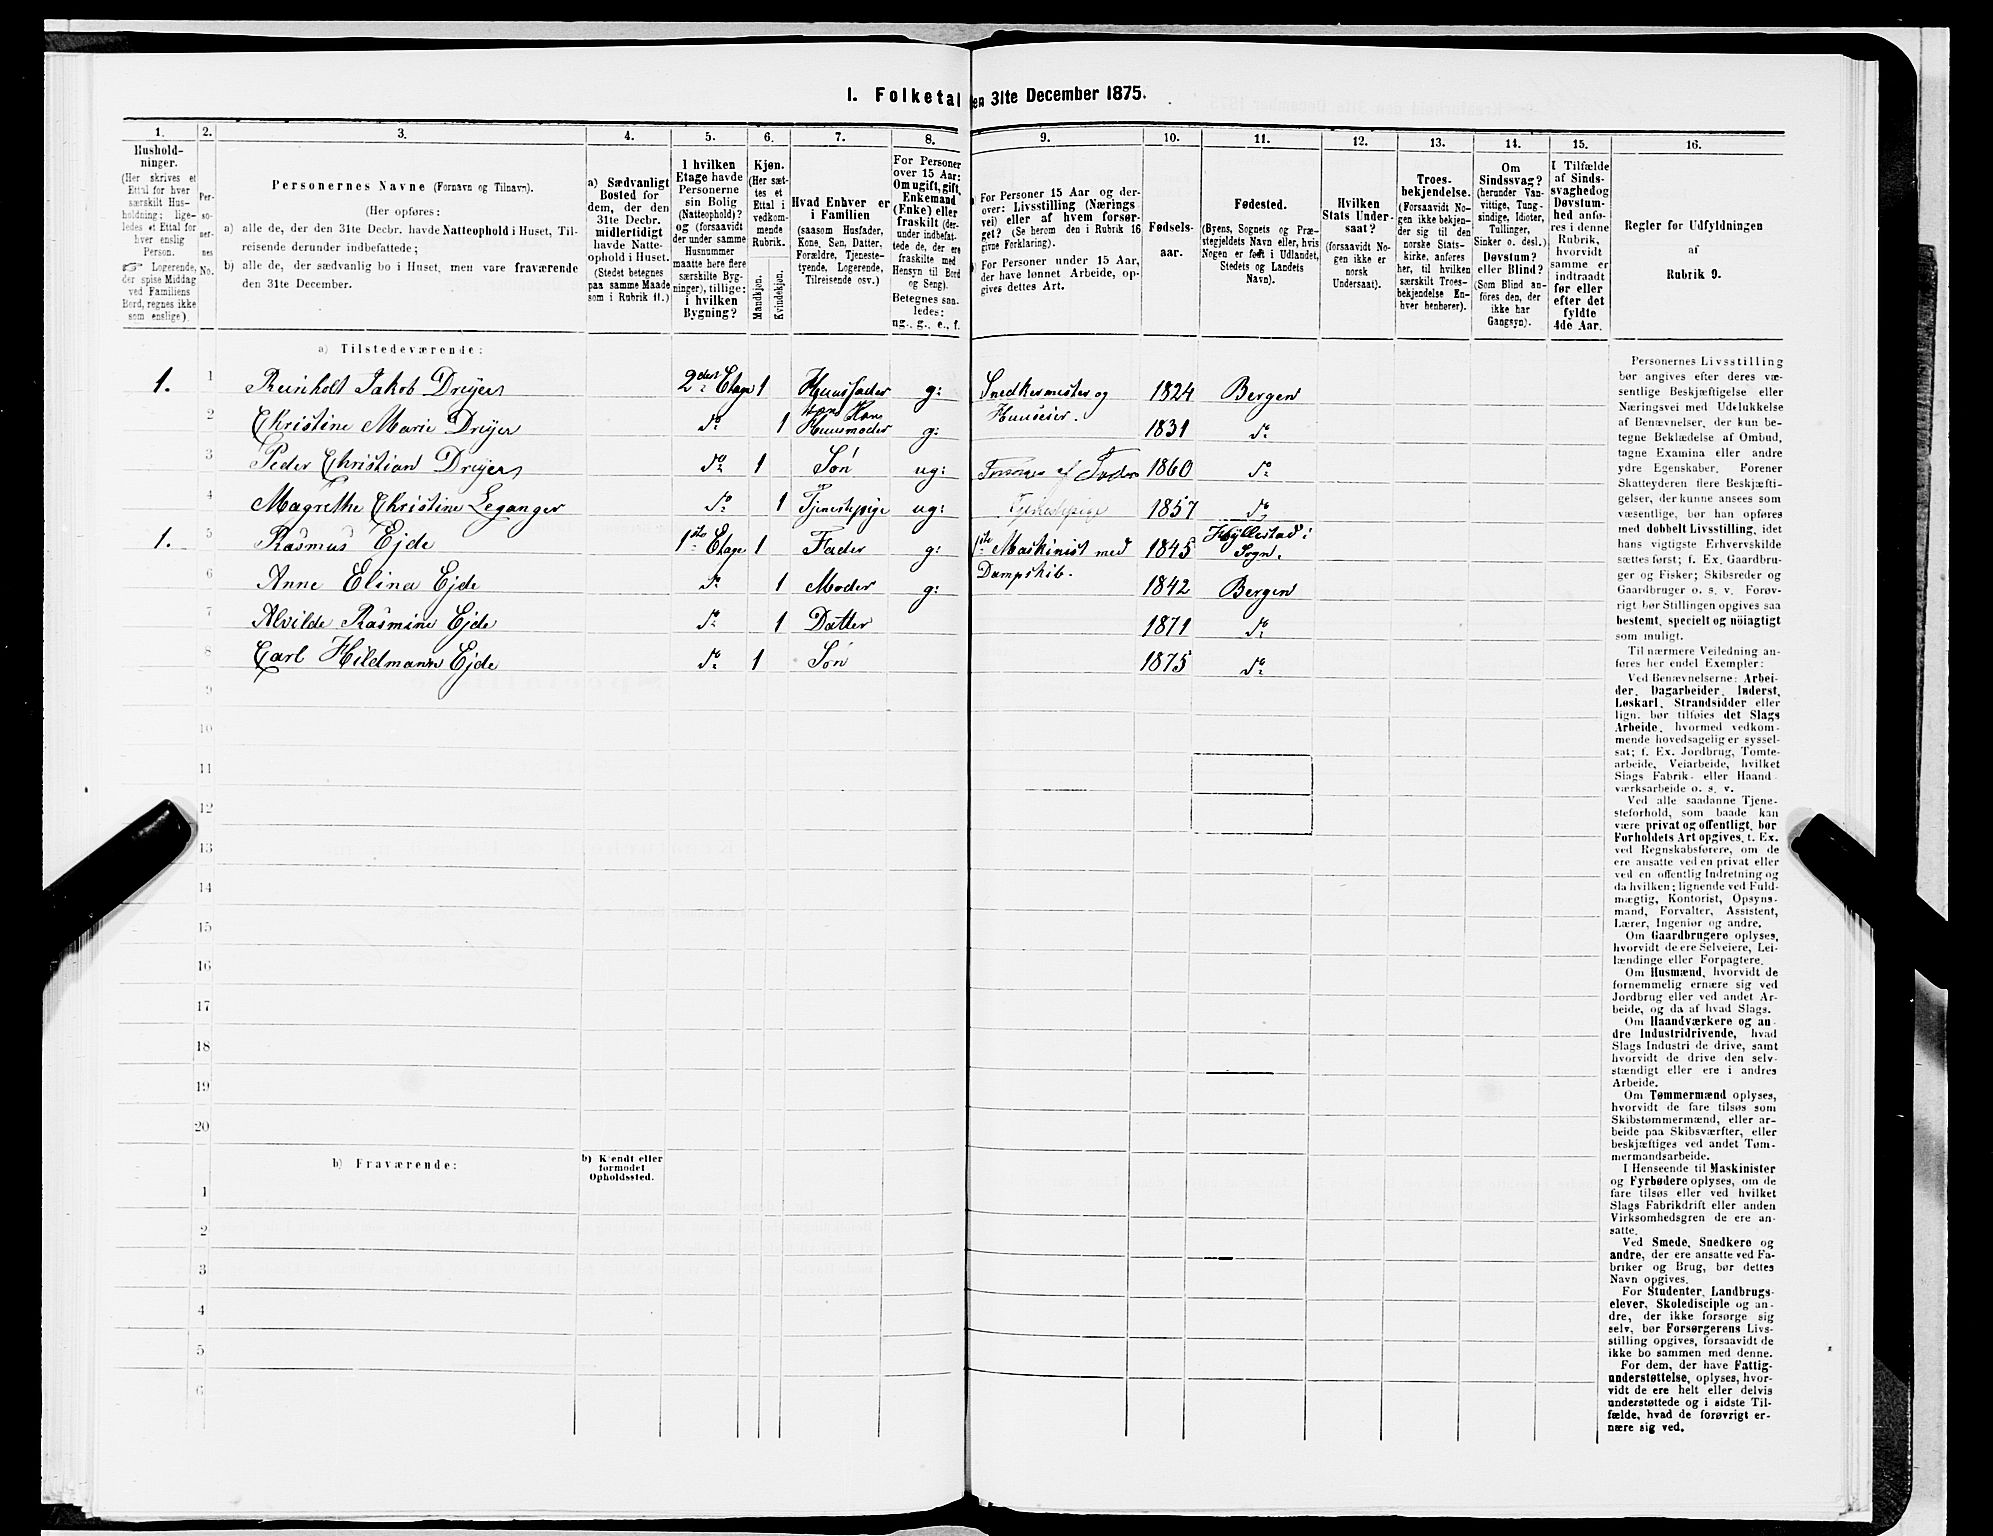 1. Folketal den 31te December 1875.
1. 2. 3. 4. 5. 6. 7. 8. 9. 10. 11. 12. 13. 14. 15. 16.
Hushold-
ninger.
(Her skrives et
Ettal for hver
særskilt Hus-
holdning; lige-
ledes et Ettal for
hver enslig
Person.
☞ Logerende,
der spise Middag
ved Familiens
Bord, regnes ikke
som enslige).
Per-
so-
ner-
nes
No.
Personernes Navne (Fornavn og Tilnavn).
(Her opføres:
a) alle de, der den 31te Decbr. havde Natteophold i Huset, Til-
reisende derunder indbefattede;
b) alle de, der sædvanlig bo i Huset, men vare fraværende
den 31te December.
a) Sædvanligt
Bosted for
dem, der den
31te Decbr.
midlertidigt
havde Natte-
ophold i Huset.
(Stedet betegnes
paa samme Maade
som i Rubrik 11.)
I hvilken
Etage havde
Personerne
sin Bolig
(Natteophold)?
og (forsaavidt
der under samme
Husnummer
maatte høre flere
særskilte Byg-
ninger), tillige:
i hvilken
Bygning?
Kjøn.
(Her sæt-
tes et
Ettal i
vedkom-
mende
Rubrik.
Mandkjøn.
Kvindekjøn.
Hvad Enhver er
i Familien
(saasom Husfader,
Kone, Søn, Datter,
Forældre, Tjeneste-
tyende, Logerende,
Tilreisende osv.)
For Personer
over 15 Aar:
Om ugift, gift,
Enkemand
(Enke) eller
fraskilt (der-
under indbefat-
tede de, der ere
fraskilte med
Hensyn til Bord
og Seng).
Betegnes saa-
ledes:
ug., g., e., f.
For Personer 15 Aar og der-
over: Livsstilling (Nærings
vei) eller af hvem forsør-
get? (Se herom den i Rubrik 16
givne Forklaring).
For Personer under 15 Aar,
der have lønnet Arbeide, op-
gives dettes Art.
Fødsels-
aar.
Fødested.
(Byens, Sognets og Præ-
stegjeldets Navn eller, hvis
Nogen er født i Udlandet,
Stedets og Landets
Navn).
Hvilken
Stats Under-
saat?
(forsaavidt No-
gen ikke er
norsk
Undersaat).
Troes-
bekjendelse.
(Forsaavidt No-
gen ikke bekjen-
der sig til den
norske Stats-
kirke, anføres
her, til hvilken
særskilt Troes-
bekjendelse En-
hver henhører).
Om
Sindssvag?
(herunder Van-
vittige, Tung-
sindige, Idioter,
Tullinger,
Sinker o. desl.)
Døvstum?
eller Blind?
(Som Blind an-
føres den, der
ikke har
Gangsyn).
I Tilfælde
af Sinds-
svaghed og
Døvstum-
hed anfø-
res i denne
Rubrik,
hvorvidt
samme er
indtraadt
før eller
efter det
fyldte
4de Aar.
Regler for Udfyldningen
af
Rubrik 9.
a) Tilstedeværende:
1. 1 Reinholt Jakob Dreyer 2den Etage 1 Huusfader g: Snedkermester og 1824 Bergen
Huuseier.
2 Christine Marie Dreyer do 1 Kone Huusmoder g: 1831 do
3 Peder Christian Dreyer do 1 Søn ug: Forsørges af Fader 1860 do
4 Magrethe Christine Leganger do 1 Tjenestepige ug: Tjenestepige 1857 do
1. 5 Rasmus Ejde 1ste Etage 1 Fader g: 1ste Maskinist med 1845 Hyllestad i
Dampskib. Sogn.
6 Anne Elina Ejde do 1 Moder g: 1842 Bergen
7 Alvilde Rasmine Ejde do 1 Datter 1871 do
8 Carl Hildmann Ejde do 1 Søn 1875 do
9
10
11
12
13
14
15
16
17
18
19
20
b) Fraværende:
b) Kjendt eller
formodet
Opholdssted.
1
2
3
4
5
6
Personernes Livsstilling
bør angives efter deres væ-
sentlige Beskjæftigelse eller
Næringsvei med Udelukkelse
af Benævnelser, der kun be-
tegne Beklædelse af Ombud,
tagne Examina eller andre
ydre Egenskaber. Forener
Skatteyderen flere Beskjæfti-
gelser, der kunne ansees som
væsentlige, bør han opføres
med dobbelt Livsstilling, idet
hans vigtigste Erhvervskilde
sættes først; f. Ex. Gaardbru-
ger og Fisker; Skibsreder og
Gaardbruger o. s. v. Forøv-
rigt bør Stillingen opgives saa
bestemt, specielt og nöiagtigt
som muligt.
Til nærmere Veiledning an-
føres her endel Exempler:
Ved Benævnelserne: Arbei-
der, Dagarbeider, Inderst,
Løskarl, Strandsidder eller
lign. bør tilføies det Slags
Arbeide, hvormed vedkom-
mende hovedsagelig er syssel-
sat; f. Ex. Jordbrug, Tomte-
arbeide, Veiarbeide, hvilket
Slags Fabrik- eller Haand-
værksarbeide o. s. v.
Ved alle saadanne Tjene-
steforhold, som baade kan
være privat og offentligt, bør
Forholdets Art opgives, t. Ex.
ved Regnskabsførere, om de
ere ansatte ved en privat eller
ved en offentlig Indretning og
da hvilken; lignende ved Fuld-
mægtig, Kontorist, Opsyns-
mand, Forvalter, Assistent,
Lærer, Ingeniør og andre.
Om Gaardbrugere oplyses,
hvorvidt de ere Selveiere, Lei-
lændinge eller Forpagtere.
Om Husmænd, hvorvidt de
fornemmelig ernære sig ved
Jordbrug eller ved andet Ar-
beide, og da af hvad Slags.
Om Haandværkere og an-
dre Industridrivende, hvad
Slags Industri de drive, samt
hvorvidt de drive den selv-
stændigt eller ere i andres
Arbeide.
Om Tømmermænd oplyses,
hvorvidt de fare tilsøs som
Skibstømmermænd, eller ar-
beide paa Skibsværfter, eller
beskjæftiges ved andet Tøm-
mermandsarbeide.
I Henseende til Maskinister
og Fyrbødere oplyses, om de
fare tilsøs eller ved hvilket
Slags Fabrikdrift eller anden
Virksomhedsgren de ere an-
satte.
Ved Smede, Snedkere og
andre, der ere ansatte ved Fa-
briker og Brug, bør dettes
Navn opgives.
For Studenter, Landbrugs-
elever, Skoledisciple og an-
dre, der ikke forsørge sig
selv, bør Forsørgerens Livs-
stilling opgives, forsaavidt de
ikke bo sammen med denne.
For dem, der have Fattig-
understøttelse, oplyses, hvor-
vidt de ere helt eller delvis
understøttede og i sidste Til-
fælde, hvad de forøvrigt er-
nære sig ved.